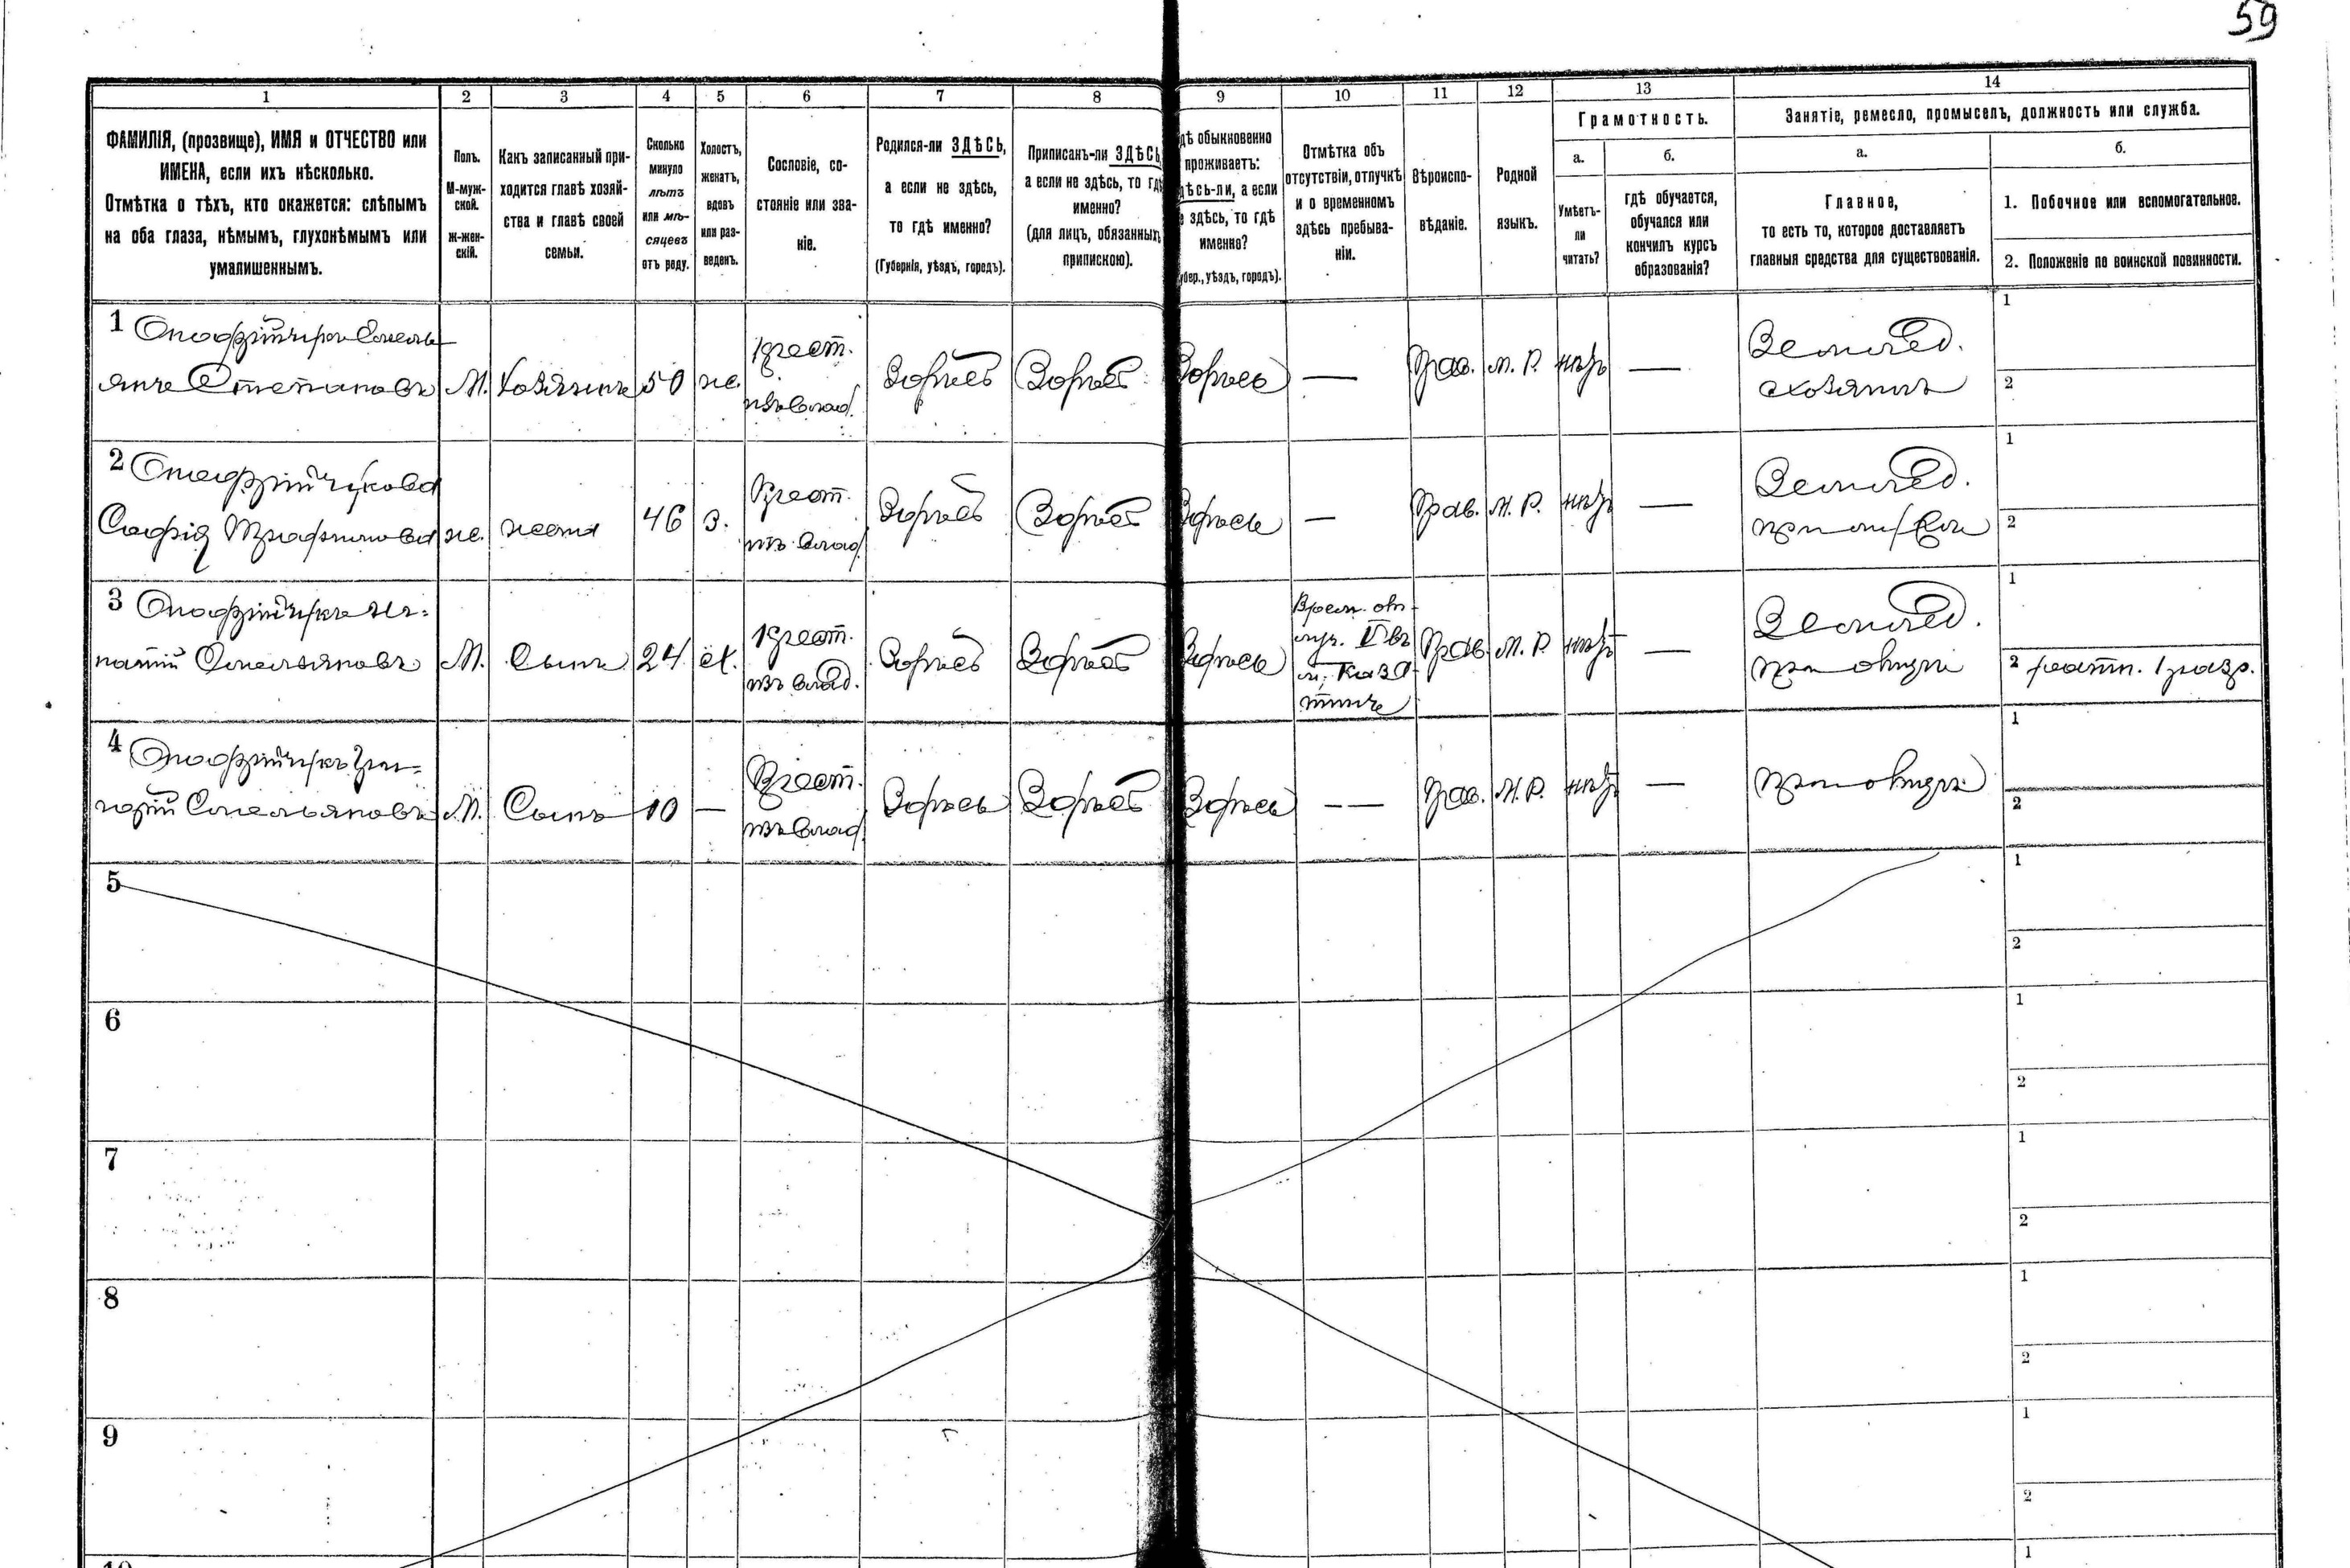 59
1
2
3
4
5
6
7
8
9
10
11
12
13
14
ФАМИЛІЯ, (прозвище), ИМЯ и ОТЧЕСТВО или
ИМЕНА, если ихъ нѣсколько.
Отмѣтка о тѣхъ, кто окажется: слѣпымъ
на оба глаза, нѣмымъ, глухонѣмымъ или
умалишеннымъ.
Полъ.
М-муж-
ской.
Ж-жен-
скій.
Какъ записанный при-
ходится главѣ хозяй-
ства и главѣ своей
семьи.
Сколько
минуло
лѣтъ
или мѣ-
сяцевъ
отъ роду.
Холостъ,
женатъ,
вдовъ
или раз-
веденъ.
Сословіе, со-
стояніе или зва-
ніе.
Родился-ли ЗДѢСЬ,
а если не здѣсь,
то гдѣ именно?
(Губернія, уѣздъ, городъ).
Приписанъ-ли ЗДѢСЬ,
а если не здѣсь, то гдѣ
именно?
(для лицъ, обязанныхъ
припискою).
дѣ обыкновенно
проживаетъ:
дѣсь-ли, а если
е здѣсь, то гдѣ
именно?
убер., уѣздъ, городъ).
Отмѣтка объ
отсутствіи, отлучкѣ
и о временномъ
здѣсь пребыва-
ніи.
Вѣроиспо-
вѣданіе.
Родной
языкъ.
Грамотность.
а.
Умѣетъ-
ли
читать?
б.
гдѣ обучается,
обучался или
кончилъ курсъ
образованія?
Занятіе, ремесло, промыселъ, должность или служба.
а.
Главное,
то есть то, которое доставляетъ
главныя средства для существованія.
б.
1. Побочное или вспомогательное.
2. Положеніе по воинской повинности.
1
янъ Степановъ М. Хозяинъ 50 ж. Крест. изъ влад. Здѣсь Здѣсь Здѣсь — Прав. М. Р. нѣтъ — Землед. хозяинъ
1
2
2
Софія Трофимова ж. жена 46 з. Крест. изъ влад. Здѣсь Здѣсь Здѣсь — Прав. М. Р. нѣтъ — Землед.
1
2
3
Емельяновъ М. Сынъ 24 х. Крест. изъ влад. Здѣсь Здѣсь Здѣсь Прав. М. Р. нѣтъ — Землед. при отцѣ
1
2 ратн. 1 разр.
4
Емельяновъ М. Сынъ 10 — Крест. изъ влад. Здѣсь Здѣсь Здѣсь — — Прав. М. Р. нѣтъ — при отцѣ
1
2
5
1
2
6
1
2
7
1
2
8
1
2
9
1
2
10
1